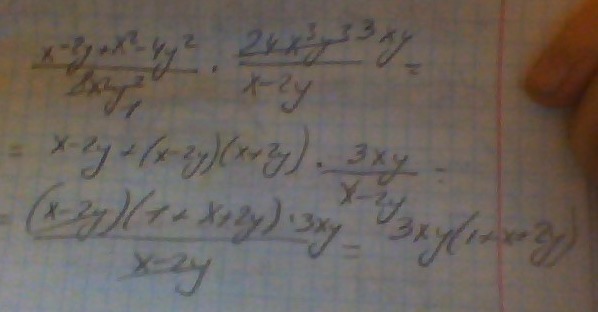 x-2y+x²-4y² / 8x²y² 1 · 24x³y³ 3xy / x-2y =
= x-2y+(x-2y)(x+2y) · 3xy / x-2y =
= (x-2y)(1+x+2y)·3xy / x-2y = 3xy(1+x+2y)